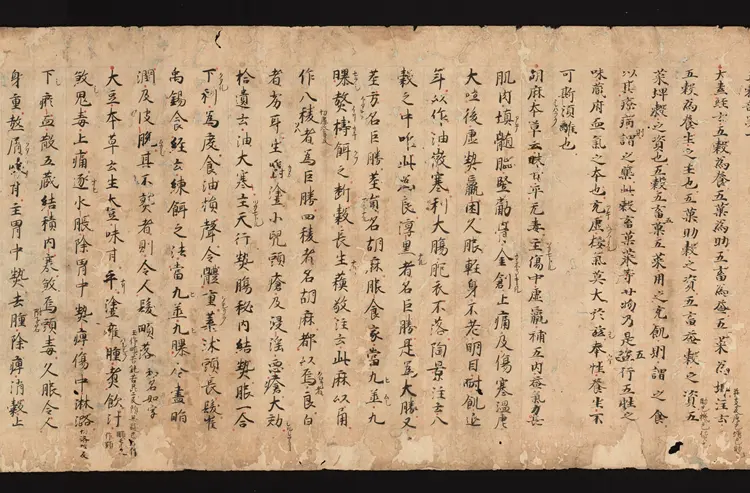 大素經云五穀為養五菓為助五畜為益五菜為埤注云
五穀為養生之主也五菓助穀之資五畜益穀之資五
菜埤穀之資也五穀五畜五菓五菜用之充飢則謂之食
以其療病謂之藥此穀畜菓菜等廿物乃是五行五性之
味藏府血氣之本也充虛接氣莫大於茲奉性養生不
可斯須離也
胡麻本草云味甘平无毒主傷中虛羸補五内益氣力長
肌肉填髓腦堅筋骨金創上痛及傷寒溫瘧
大吐後虛熱羸困久服輕身不老明目耐飢延
年以作油微寒利大腸胞衣不落陶景注云八
穀之中唯此為良淳黑者名巨勝是為大勝又
莖方名巨勝莖圓名胡麻服食家當九蒸九
曝熬擣餌之斷穀長生蘇敬注云此麻以角
作八稜者為巨勝四稜者名胡麻都以烏良白
者劣耳生嚼塗小兒頭瘡及浸淫惡瘡大効
拾遺云油大寒主天行熱腸秘内結熱服一合
下利為度食油損聲令體重葉沐頭長髮崔
禹錫食經云練餌之法當九蒸九曝令盡脂
潤及皮脫其不熟者則令人髮嚲落 和名如字
大豆本草云生大豆味甘平塗癰腫煮飲汁
敓鬼毒上痛逐水脹除胃中熱痺傷中淋露
下瘀血散五藏結積内寒敓烏頭毒久服令人
身重熬屑味甘主胃中熱去腫除痺消穀上